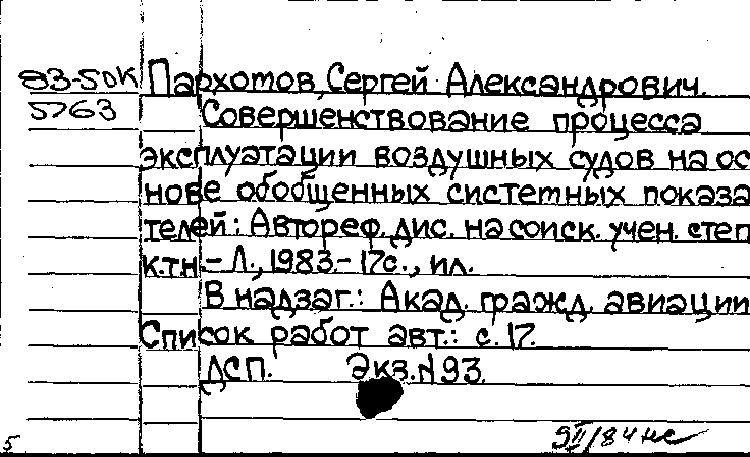 83-50К Пархотов, Сергей Александрович.
5763 Совершенствование процесса
эксплуатации воздушных судов на ос
нове обобщенных системных показа
телей: Автореф. дис. на соиск. учен. степ
к.т.н. - Л., 1983. - 17с., ил.
В надзаг.: Акад. гражд. авиации
Список работ авт.: с. 17.
ДСП. Экз. N 93.
5